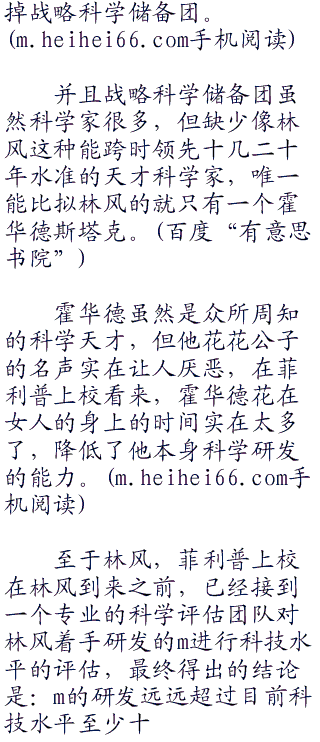 掉战略科学储备团。
(m.heihei66.com手机阅读)
并且战略科学储备团虽
然科学家很多，但缺少像林
风这种能跨时领先十几二十
年水准的天才科学家，唯一
能比拟林风的就只有一个霍
华德斯塔克。(百度“有意思
书院”)
霍华德虽然是众所周知
的科学天才，但他花花公子
的名声实在让人厌恶，在菲
利普上校看来，霍华德花在
女人的身上的时间实在太多
了，降低了他本身科学研发
的能力。(m.heihei66.com手
机阅读)
至于林风，菲利普上校
在林风到来之前，已经接到
一个专业的科学评估团队对
林风着手研发的m进行科技水
平的评估，最终得出的结论
是：m的研发远远超过目前科
技水平至少十